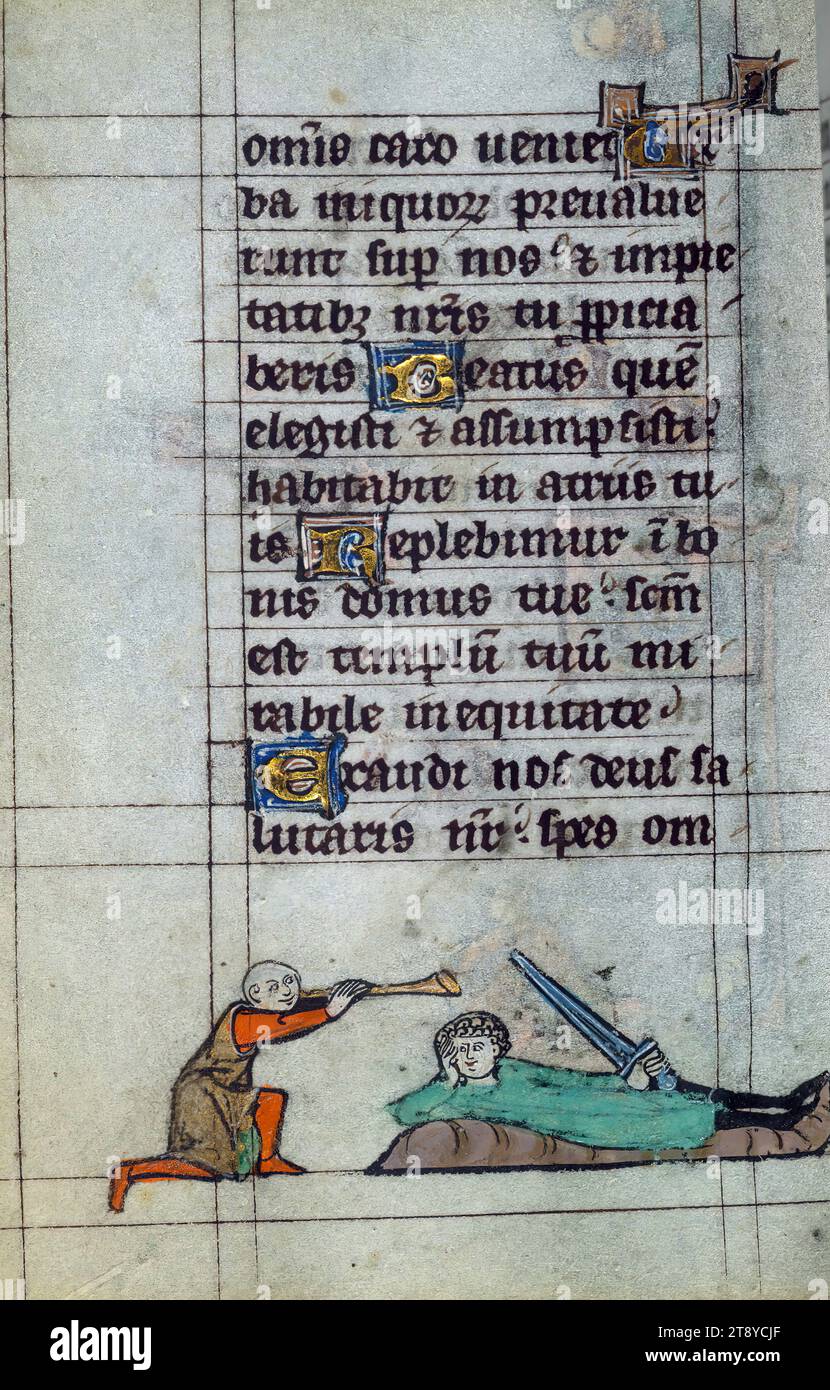 om̄is caro ueniet Uer
ba iniquoꝝ preualue
runt suꝑ nos ⁊ impie
tatibꝫ nr̄is tu ꝓpicia
beris Beatus quē
elegisti ⁊ assumpsisti
habitabit in atriis tu
is Replebimur ī bo
nis domus tue sc̄m
est templū tuū mi
rabile in equitate
Exaudi nos deus sa
lutaris nr̄ spes om
alamy
alamy
Image ID: 2T8YCJF
www.alamy.com